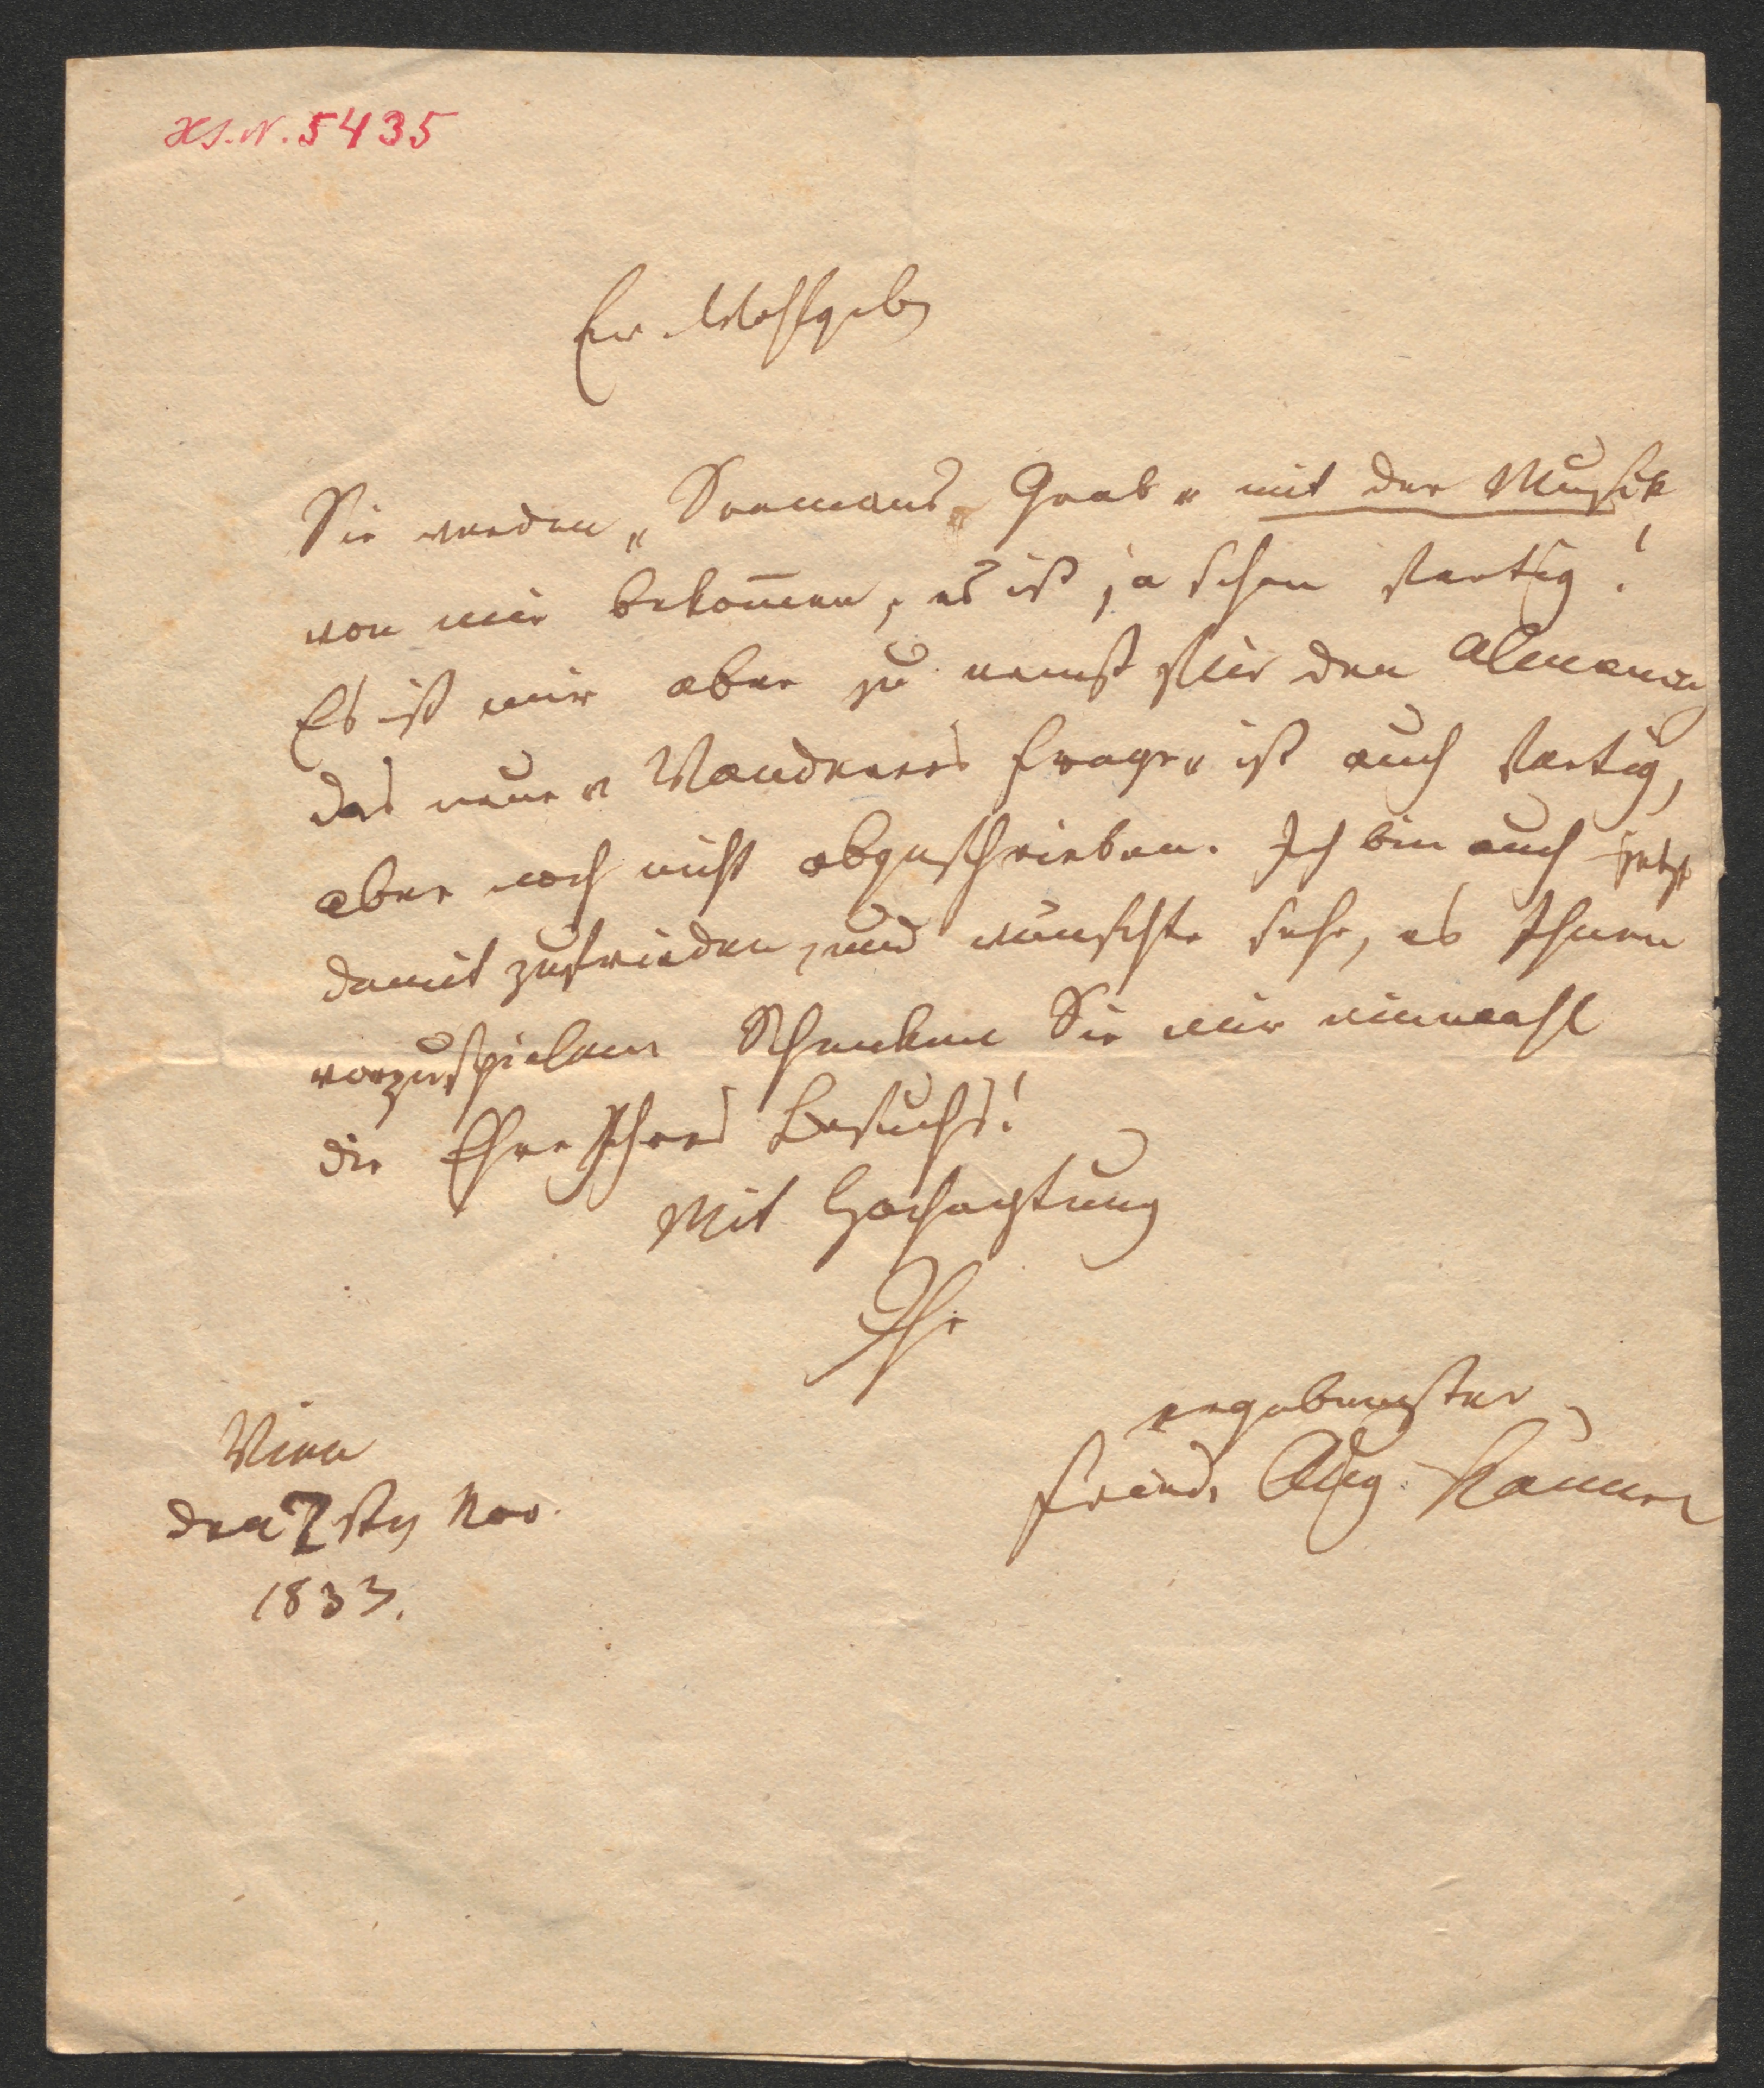 Hs. N. 5435
Ew Wohlgeb
Sie werden „Seemans Grab" mit der Musik
von mir bekom̅en, es ist ja schon fertig!
Es ist mir aber zu ernst für den Almanach
das neue „Wanderers Frage" ist auch fertig,
aber noch nicht abgeschrieben. Ich bin auch
damit zufrieden, und wünschte sehr, es Ihnen
vorzuspielen Schenken Sie mir einmahl
die Ehre Ihres Besuchs!
Mit Hochachtung
Ihr
ergebenster
Friedr Aug. Kanne
Wien
den 7ten Nov.
1833.